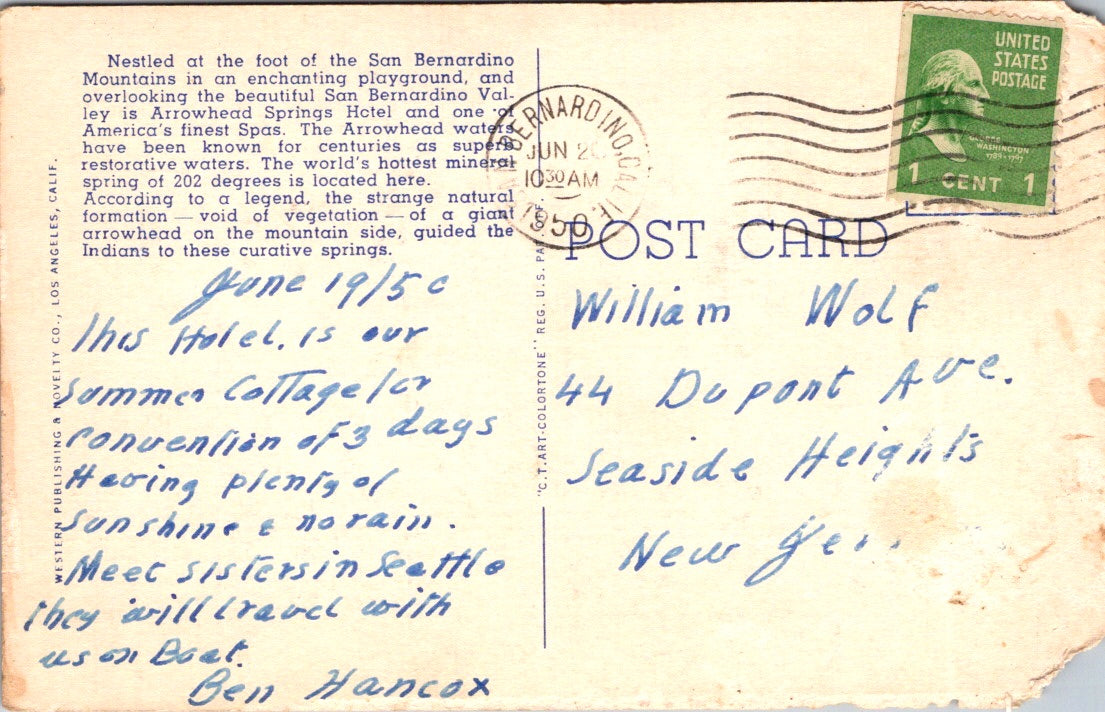 Nestled at the foot of the San Bernardino
Mountains in an enchanting playground, and
overlooking the beautiful San Bernardino Val-
ley is Arrowhead Springs Hotel and one of
America's finest Spas. The Arrowhead waters
have been known for centuries as superb
restorative waters. The world's hottest mineral
spring of 202 degrees is located here.
According to a legend, the strange natural
formation — void of vegetation — of a giant
arrowhead on the mountain side, guided the
Indians to these curative springs.
WESTERN PUBLISHING & NOVELTY CO., LOS ANGELES, CALIF.
June 19/50
This Hotel. is our
Summer Cottage for
convention of 3 days
Having plenty of
sunshine & no rain.
Meet sisters in Seattle
they will travel with
us on Boat.
Ben Hancox
"C.T. ART-COLORTONE" REG. U.S. PAT. OFF.
BERNARDINO, CALIF.
JUN
10 30 AM
1950
UNITED
STATES
POSTAGE
WASHINGTON
1789-1797
1 CENT 1
POST CARD
William Wolf
44 Dupont Ave.
Seaside Heights
New